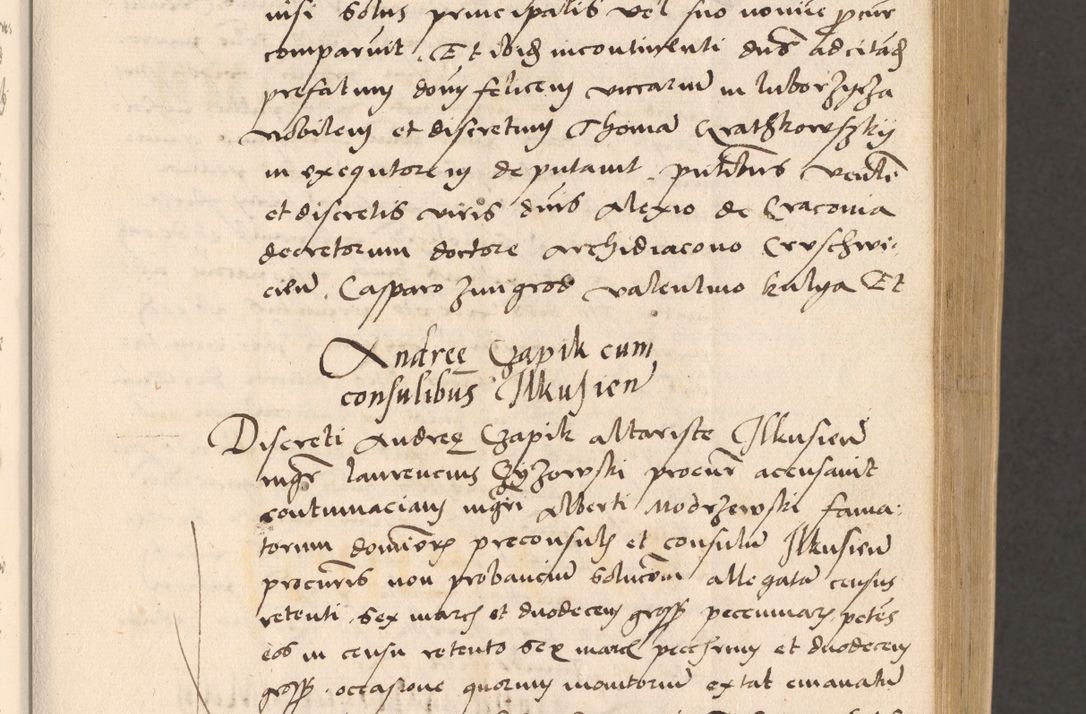 nisi solus principalis vel suo nomine procur
comparuit. Et ibid incontinenti dns ad citand
prefatum donum felicem viccarium in luborzycza
nobilem et discretum Thoma Czathkowszkij
in exequtorem deputavit. pntibus vendi
et discretis viris dnis Alexio de Craconia
decretorum doctore Archidiacono Cruschwi-
cien Casparo Zungrod valentino kulya Et
Andreę Czapik cum
consulibus Ilkusien
Discreti Andreę Czapik altariste Ilkusien
mgr laurencius Czyzowski procur accusavit
contumaciam mgri Alberti Modrzewski fama-
torum dominorum preconsulis et consulum Ilkusien
procuris non probancium solucionem allegatam census
retenti sex marcs et duodecem gross peccuniarum petens
eos in censu retento sex marcs pecchrum et duodecem
gross. occasione quorum monitorium extat emanatum